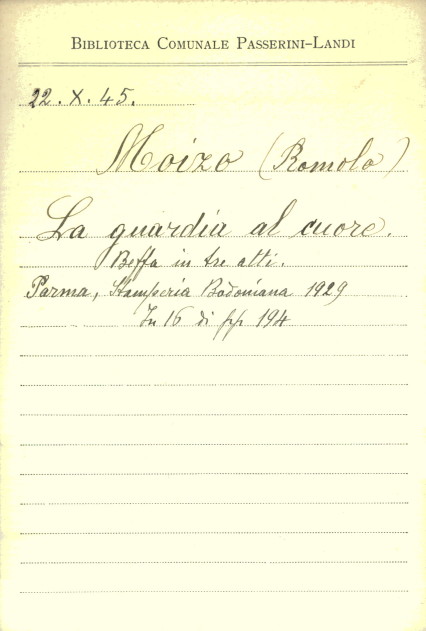 BIBLIOTECA COMUNALE PASSERINI-LANDI
22. X. 45.
Moizo (Romolo)
La guardia al cuore.
Beffa in tre atti.
Parma, Stamperia Bodoniana 1929
In 16 di pp 194